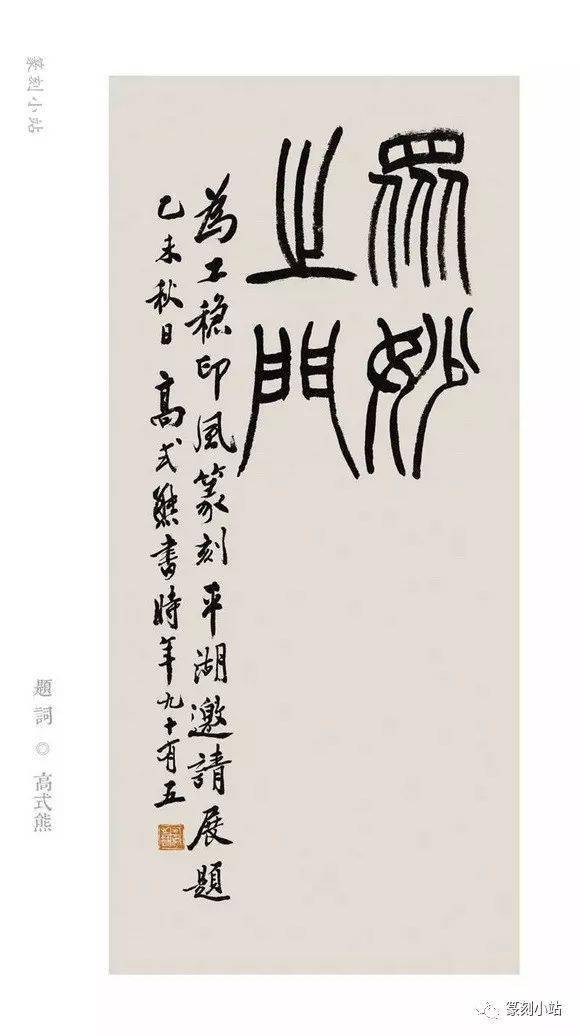 篆刻小站
眾妙
之門
為工穩印風篆刻平湖邀請展題
乙未秋日高式熊書時年九十有五
題詞◎高式熊
篆刻小站